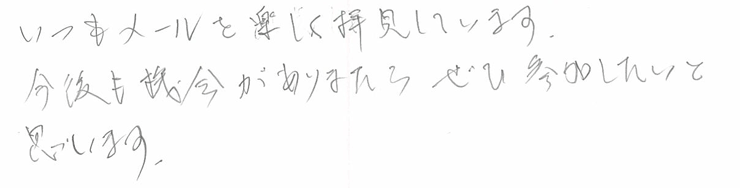 いつもメールを楽しく拝見しています.
今後も機会がありましたら ぜひ参加したいと
思っています.